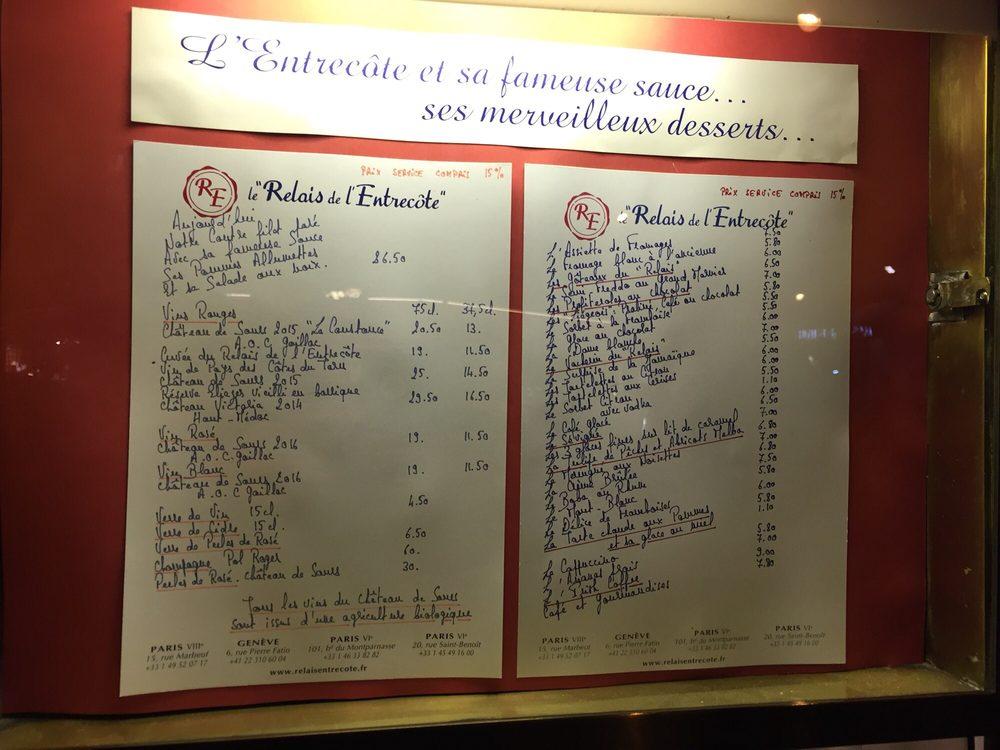 L'Entrecôte et sa fameuse sauce...
ses merveilleux desserts...
PRIX SERVICE COMPRIS 15%
RE
le "Relais de l'Entrecôte"
Aujourd'hui
Notre Contre filet paré
Avec sa fameuse Sauce
Ses Pommes Allumettes
Et sa Salade aux noix. 26.50
Vins Rouges 75cl. 37,5cl.
Château de Saurs 2015 "La Constance" 20.50 13.
A.O.C Gaillac
Cuvée du Relais de l'Entrecôte 19. 11.50
Vin de Pays des Côtes du Tarn
Château de Saurs 2015 25. 14.50
Réserve Eliezes Vieilli en barrique
Château Victoria 2014 29.50 16.50
Haut-Médoc
Vin Rosé
Château de Saurs 2016 19. 11.50
A.O.C. gaillac
Vin Blanc
Château de Saurs 2016 19. 11.50
A.O.C Gaillac
Verre de Vin 15cl. 4.50
Verre de Cidre 15cl.
Verre de Perles de Rosé 6.50
Champagne Pol Roger 60.
Perles de Rosé. Château de Saurs 30.
Tous les vins du Château de Saurs
sont issus d'une agriculture biologique
PARIS VIIIe
15, rue Marbeuf
+33 1 49 52 07 17
GENÈVE
6, rue Pierre Fatio
+41 22 310 60 04
PARIS VIe
101, bd du Montparnasse
+33 1 46 33 82 82
PARIS VIe
20, rue Saint-Benoît
+33 1 45 49 16 00
www.relaisentrecote.fr
PRIX SERVICE COMPRIS 15%
RE
le "Relais de l'Entrecôte"
L'Assiette de Fromages 7.50
Le Fromage blanc à l'ancienne 5.80
Le Gâteaux du "Relais" 6.00
Le Semi-Freddo au Grand Marnier 6.50
Les Profiteroles au chocolat 7.00
Les Liégeois: Praliné, Café ou chocolat 5.80
Le Sorbet à la framboise 5.50
La Glace au chocolat 5.50
La Dame blanche 6.00
Le Vacherin du "Relais" 7.00
La Surprise de la Jamaïque 6.00
Les Tartelettes au Citron 6.00
Les Tartelettes aux cerises
Le Sorbet Citron 5.50
avec vodka 1.10
Le Café glacé 6.00
Le Sévigné 6.50
Les 3 glaces fines sur lit de caramel 7.00
La Coupe de Pêches et Abricots Melba 6.80
Le Nougat aux Noisettes 7.00
La Crème Brûlée 6.80
Le Baba au Rhum 7.50
Le Mont-Blanc 5.80
Le Délice de Framboises 6.00
La Tarte chaude aux Pommes 5.80
et sa glace au miel 1.10
Le Cappuccino 5.80
L'Ananas frais 7.00
L'Irish Coffee 9.00
Café et gourmandises 7.80
PARIS VIIIe
15, rue Marbeuf
+33 1 49 52 07 17
GENÈVE
6, rue Pierre Fatio
+41 22 310 60 04
PARIS VIe
101, bd du Montparnasse
+33 1 46 33 82 82
PARIS VIe
20, rue Saint-Benoît
+33 1 45 49 16 00
www.relaisentrecote.fr